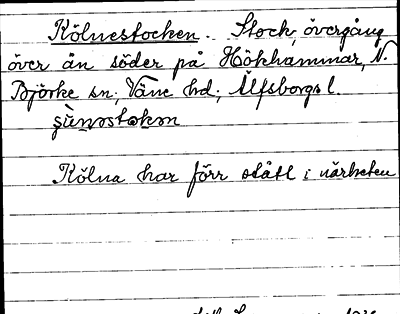 Kölnestocken. Stock, övergång
över ån söder på Hökhammar, N.
Björke sn; Väne hd; Älfsborgs l.
Kölna har förr stått i närheten